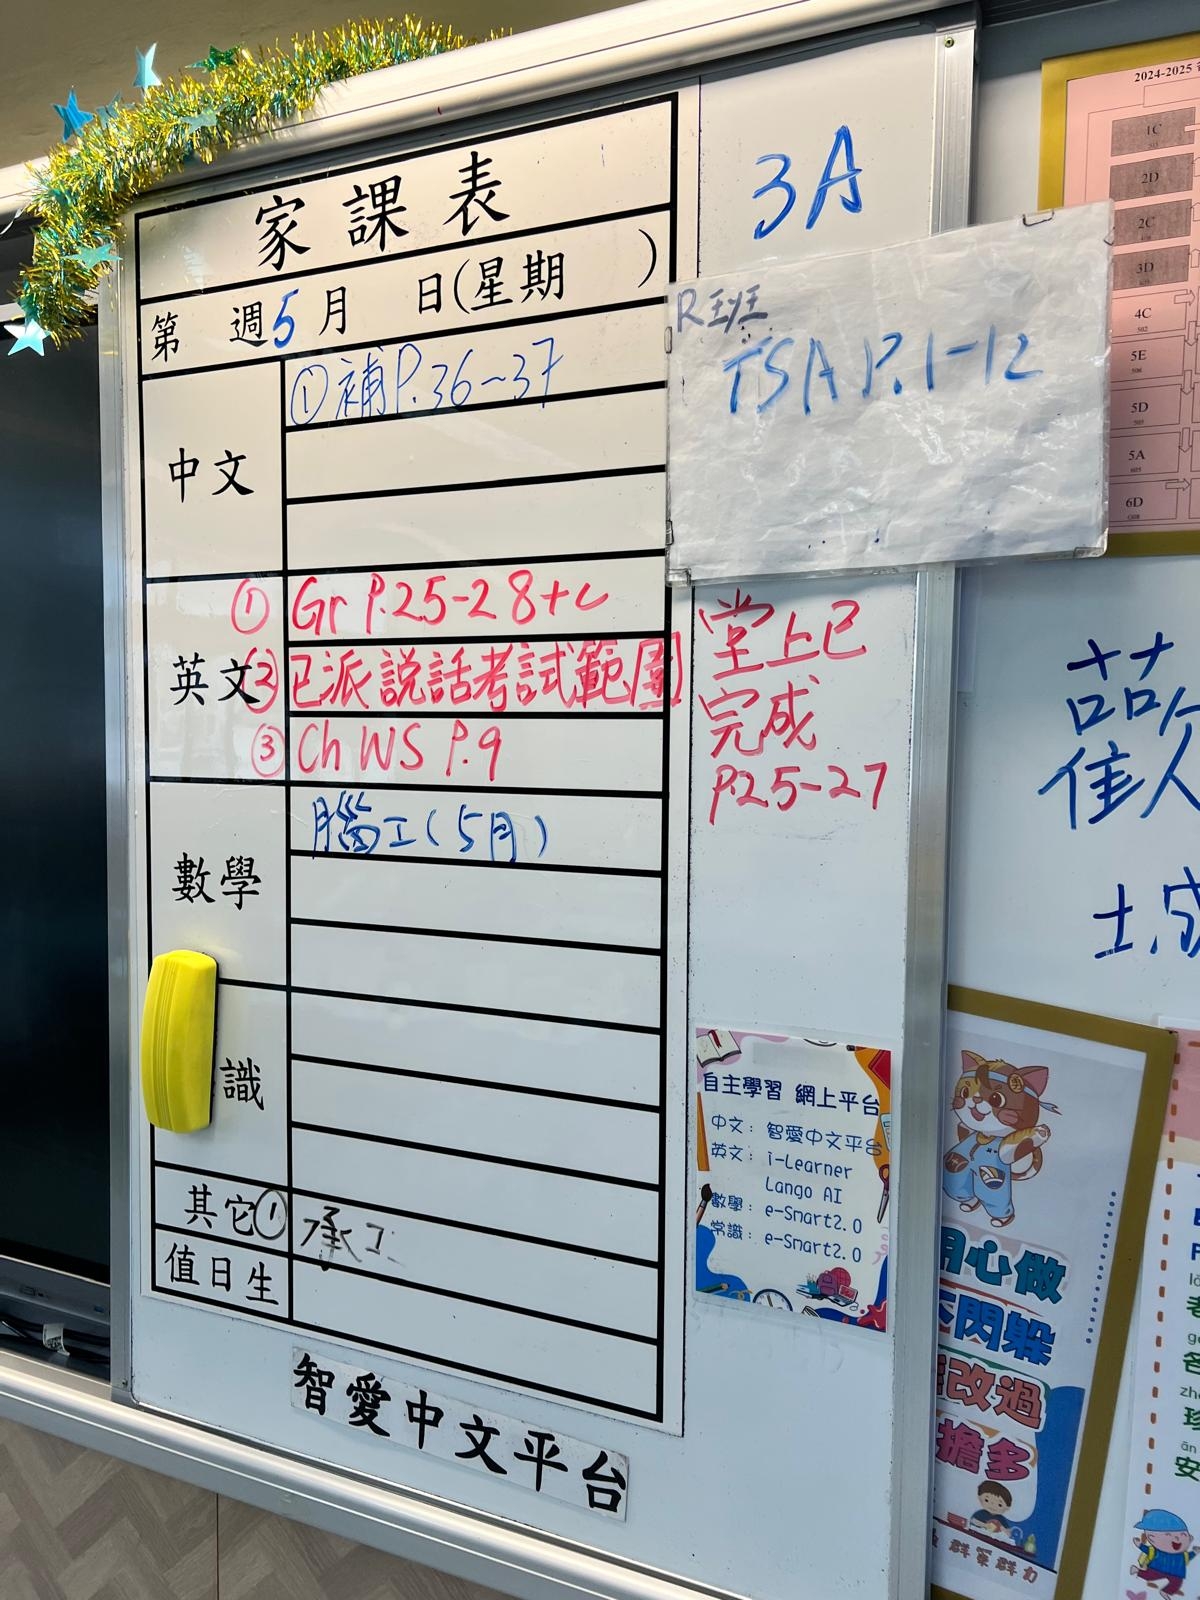 家課表
第 週5月 日(星期 )
中文
①補P.36~37
英文
① Gr P.25-28+c
② 已派說話考試範圍
③ Ch WS P.9
堂上已
完成
P.25-27
數學
腦工(5月)
識
其它① 承工
值日生
智愛中文平台
3A
R班
TSA P.1-12
自主學習 網上平台
中文: 智愛中文平台
英文: i-Learner
Lango AI
數學: e-Smart2.0
常識: e-Smart2.0
2024-2025
1C
2D
2C
3D
4C
502
5E
5D
5A
6D
歡
土成
用心做
不閃躲
改過
擔多
群策群力
老
各
珍
安